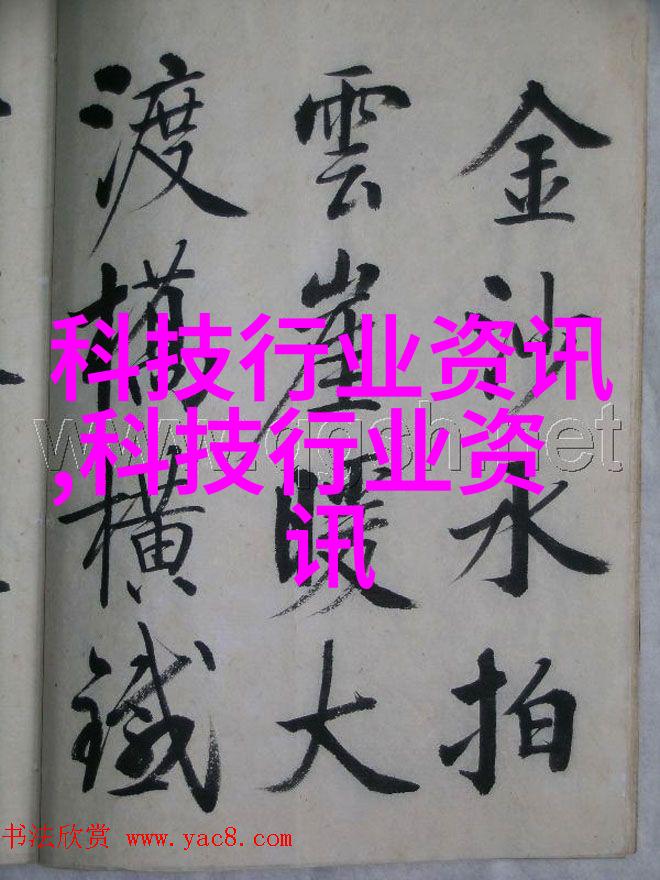 金沙水拍
雲崖暖大
渡橋横鐵
科技行业资讯
,科技行业资
讯
书法欣赏 www.yac8.com